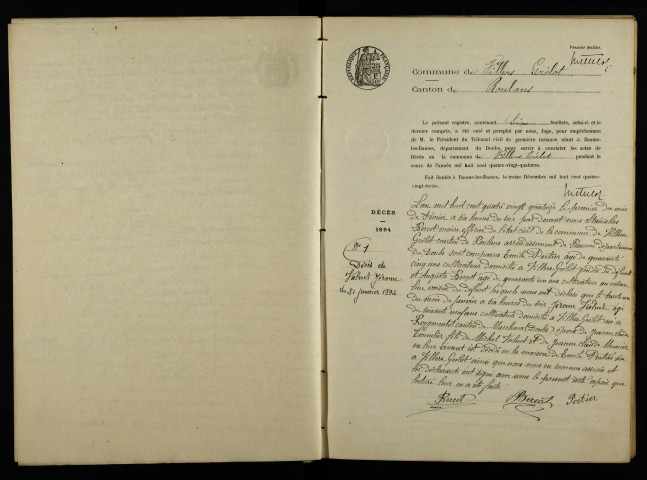 Premier feuillet.
Commune de Villers Grélot
Canton de Roulans
Le présent registre, contenant six feuillets, celui-ci et le
dernier compris, a été coté et paraphé par nous, Juge, pour empêchement
de M. le Président du Tribunal civil de première instance séant à Baume-
les-Dames, département du Doubs, pour servir à constater les actes de
Décès en la commune de Villers Grélot pendant le
cours de l'année mil huit cent quatre-vingt-quatorze.
Fait double à Baume-les-Dames, le seize Décembre mil huit cent quatre-
vingt-treize.
DÉCÈS
1894
N° 1
Décès de
Jérome
du 31 janvier 1894
L'an mil huit cent quatre vingt quatorze le premier du mois
de février à six heures du soir par devant nous Stanislas
Bercot maire officier de l'état civil de la commune de Villers
Grélot canton de Roulans arrondissement de Baume département
du Doubs sont comparus Emile Portier âgé de quarante
cinq ans cultivateur domicilié à Villers Grélot gendre du défunt
et Auguste Bercot âgé de quarante ans cultivateur au même
lieu voisin du défunt lesquels nous ont déclaré que le trente un
du mois de janvier à six heures du soir Jérome âgé
de soixante ans cultivateur domicilié à Villers Grélot né à
Rougemont canton de (Doubs) époux de jeanne claude
fils de Michel et de jeanne claude
est décédé en la maison de Emile Portier
à Villers Grélot ainsi que nous nous en sommes assurés et
les déclarants ont signé avec nous le présent acte après que
lecture leur en a été faite
Bercot Bercot Portier